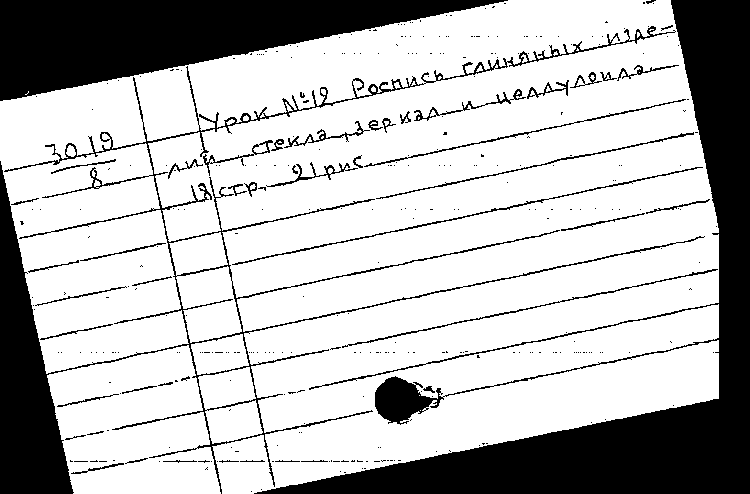 30.19
8
Урок №12 Роспись глиняных изде-
лий, стекла, зеркал и целлулоида.
18 стр. 21 рис.